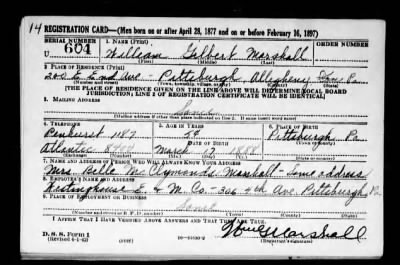 14 REGISTRATION CARD—(Men born on or after April 28, 1877 and on or before February 16, 1897)
SERIAL NUMBER
1. NAME (Print)
U 604
William Gilbert Marshall
(First) (Middle) (Last)
2. PLACE OF RESIDENCE (Print)
Ave. - Pittsburgh, Allegheny Pa.
[THE PLACE OF RESIDENCE GIVEN ON THE LINE ABOVE WILL DETERMINE LOCAL BOARD
JURISDICTION; LINE 2 OF REGISTRATION CERTIFICATE WILL BE IDENTICAL]
3. MAILING ADDRESS
Same
4. TELEPHONE
5. AGE IN YEARS
6. PLACE OF BIRTH
Penhurst 1187
Pittsburgh Pa.
DATE OF BIRTH
Atlantic
March 1888
(Exchange) (Number)
7. NAME AND ADDRESS OF PERSON WHO WILL ALWAYS KNOW YOUR ADDRESS
Mrs. Belle McClymonds Marshall - Same address
8. EMPLOYER'S NAME AND ADDRESS
Westinghouse E. & M. Co. - 306 4th Ave. Pittsburgh, Pa
9. PLACE OF EMPLOYMENT OR BUSINESS
Same
I AFFIRM THAT I HAVE VERIFIED ABOVE ANSWERS AND THAT THEY ARE TRUE.
D. S. S. Form 1
(Revised 4-1-42)
Wm G Marshall
(Registrant's signature)